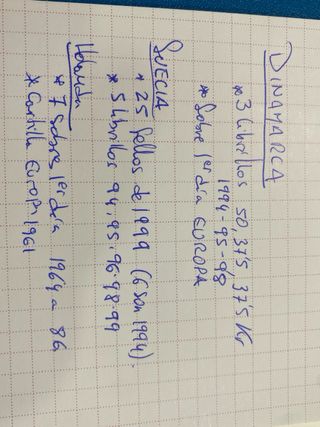 DINAMARCA
* 3 librillos 50, 37'5, 37'5 Kr
1994-95-98
* Sobre 1er día EUROPA
SUECIA
* 25 sellos de 1999 (6 son 1994).
* 5 librillos 94, 95, 96-98-99
Holanda
* 7 Sobres 1er día 1964 a 86
* Cartilla Europa 1961